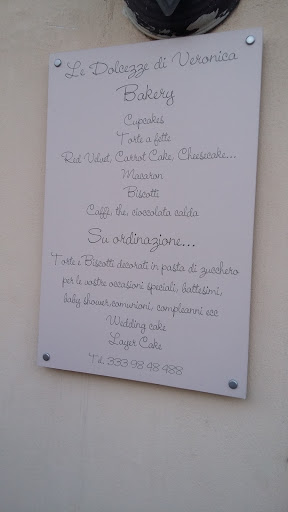 Le Dolcezze di Veronica
Bakery
Cupcakes
Torte a fette
Red Velvet, Carrot Cake, Cheesecake...
Macaron
Biscotti
Caffè, the, cioccolata calda
Su ordinazione...
Torte e Biscotti decorati in pasta di zucchero
per le vostre occasioni speciali, battesimi,
baby shower, comunioni, compleanni ecc
Wedding cake
Layer Cake
Tel. 333 98 48 488